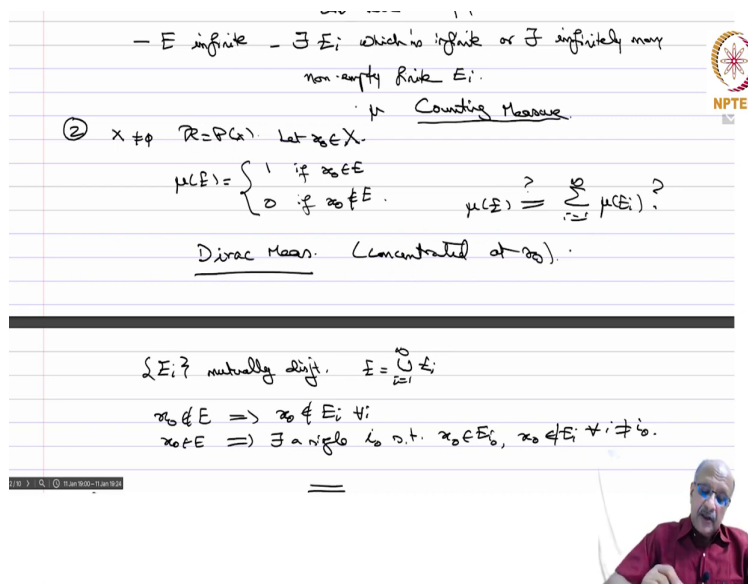 — E infinite — ∃ Ei which is infinite or ∃ infinitely many
non-empty finite Ei.
μ Counting Measure.
② X ≠ φ R = P(X). Let x₀ ∈ X.
μ(E) = { 1 if x₀ ∈ E
0 if x₀ ∉ E.
μ(E) =? ∑_{i=1}^{∞} μ(Ei)?
Dirac Meas. (concentrated at x₀).
{Ei} mutually disjt. E = ∪_{i=1}^{∞} Ei
x₀ ∉ E ⟹ x₀ ∉ Ei ∀i
x₀ ∈ E ⟹ ∃ a single i₀ s.t. x₀ ∈ Ei₀, x₀ ∉ Ei ∀ i ≠ i₀.
NPTE
2/10 11 Jan 19:00 – 11 Jan 19:24